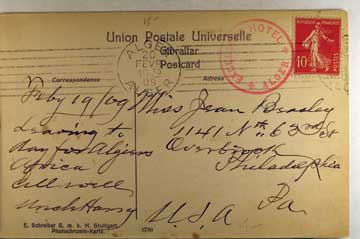 15
Union Postale Universelle
Gibraltar
Postcard
Correspondence
Adresse
ALGER
20
FEVR
09
EXCELSIOR HOTEL
ALGER
10
Feby 19/09
Leaving to
day for Algiers
Africa
all well
Uncle Harry
Miss Jean Beasley
1141 Nth 63 St
Overbrook
Philadelphia
Pa
U.S.A
E. Schreiber G. m. b. H. Stuttgart.
Photochromie-Karte.